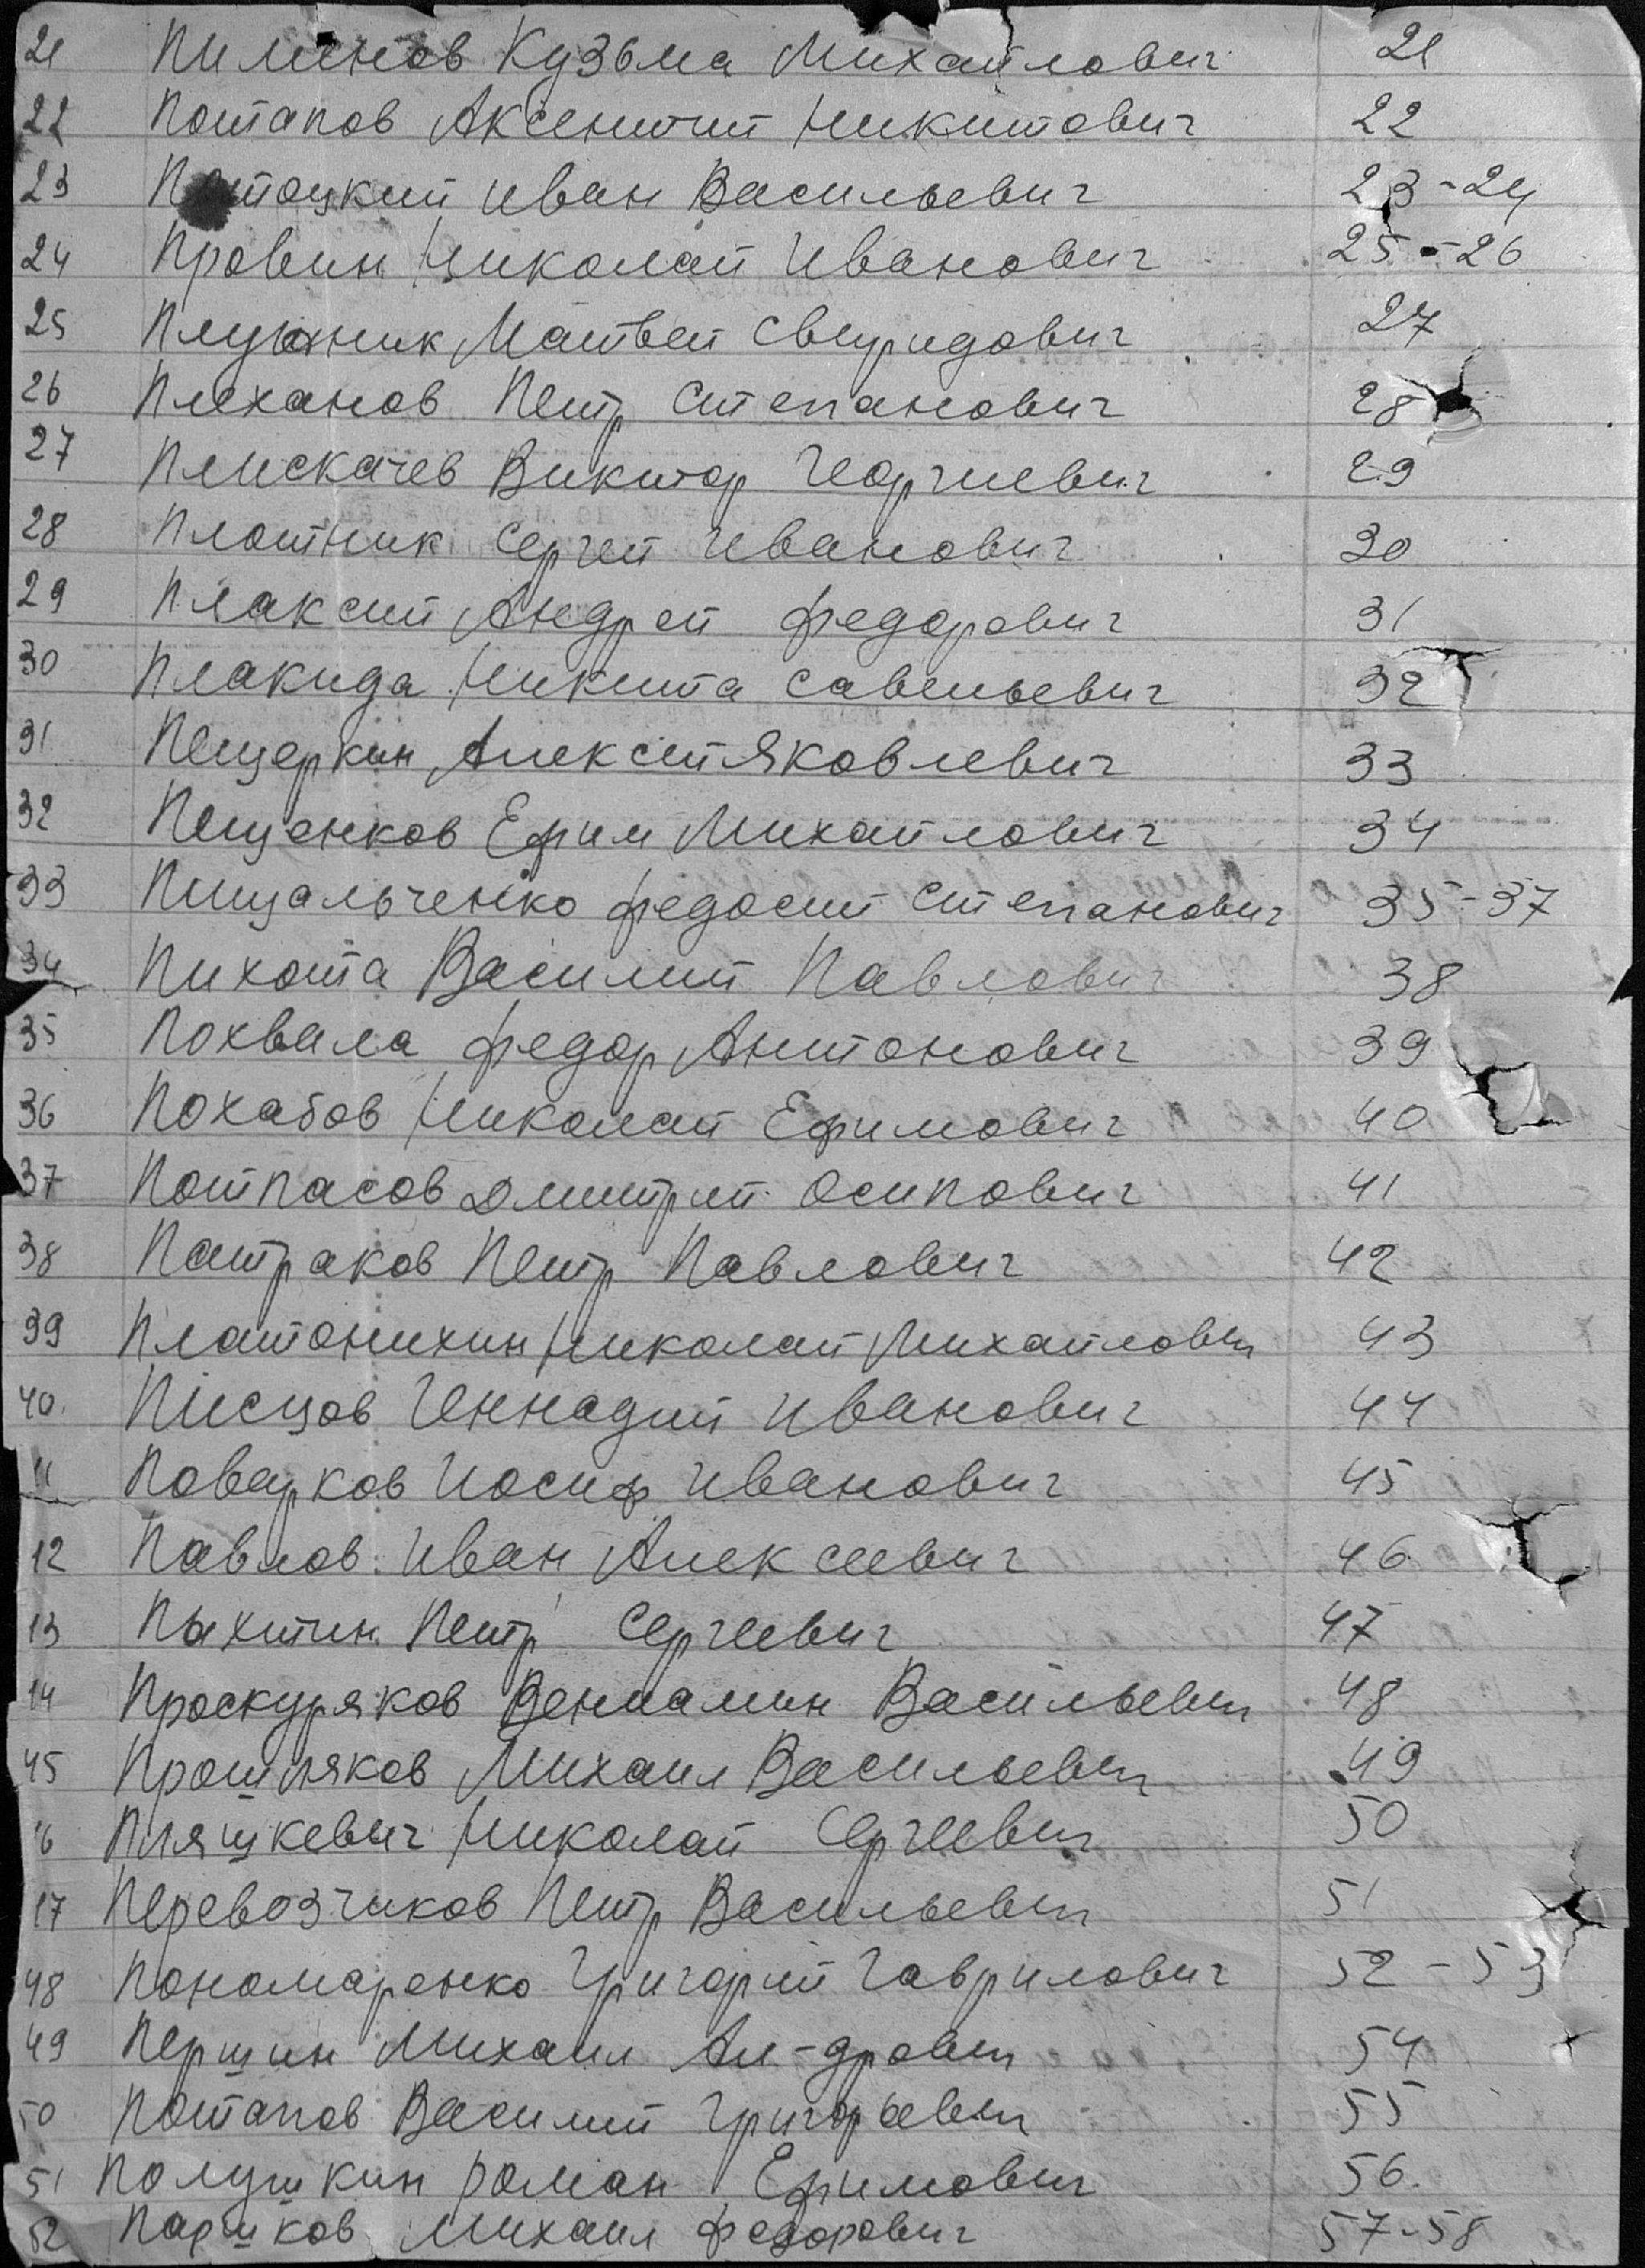 21 Пименов Кузьма Михайлович 21
22 Потапов Аксентий Никитович 22
23 Потоцкий Иван Васильевич 23-24
24 Провин Николай Иванович 25-26
25 Матвей Свиридович 27
26 Плеханов Петр Степанович 28
27 Плискачев Виктор Георгиевич 29
28 Плотник Сергей Иванович 30
29 Плаксий Андрей Федорович 31
30 Плакида Никита Савельевич 32
31 Пещеркин Алексей Яковлевич 33
32 Пещенков Ефим Михайлович 34
33 Пищальченко Федосий Степанович 35-37
34 Пихота Василий Павлович 38
35 Похвала Федор Антонович 39
36 Похабов Николай Ефимович 40
37 Потпасов Дмитрий Осипович 41
38 Патраков Петр Павлович 42
39 Платонихин Николай Михайлович 43
40. Писцов Геннадий Иванович 44
Поварков Иосиф Иванович 45
12 Павлов Иван Алексеевич 46
13 Пахтин Петр Сергеевич 47
14 Проскуряков Вениамин Васильевич 48
45 Прошляков Михаил Васильевич 49
6 Пляшкевич Николай Сергеевич 50
17 Перевозчиков Петр Васильевич 51
48 Пономаренко Григорий Гаврилович 52-53
49 Першин Михаил Ал-дрович 54
50 Потапов Василий Григорьевич 55
51 Полушкин Роман Ефимович 56.
52 Паршков Михаил Федорович 57-58